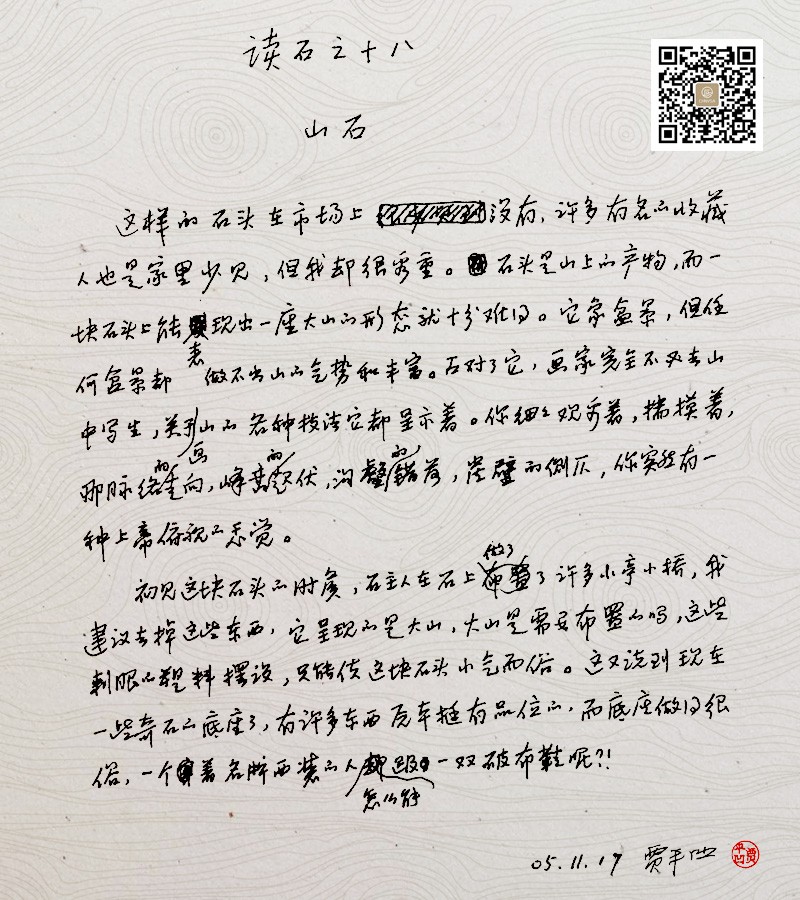 读石之十八
山石
这样的石头在市场上没有，许多有名的收藏
人也是家里少见，但我却很看重。石头是山上的产物，而一
块石头上能表现出一座大山的形态就十分难得。它象盆景，但任
何盆景却做不出山的气势和丰富。面对了它，画家完全不必去山
中写生，关于画山的各种技法它都呈示着。你细细观看着，揣摸着，
那脉络的走向，峰峦的起伏，沟壑的错落，崖壁的侧仄，你实然有一
种上帝俯视的感觉。
初见这块石头的时候，石主人在石上做了许多小亭小桥，我
建议去掉这些东西，它呈现的是大山，大山是需要布置的吗，这些
刺眼的塑料摆设，只能使这块石头小气而俗。这又说到现在
一些奇石的底座了，有许多东西原本挺有品位的，而底座做得很
俗，一个穿着名牌西装的人怎么能一双破布鞋呢？！
05.11.17 贾平凹
贾平凹